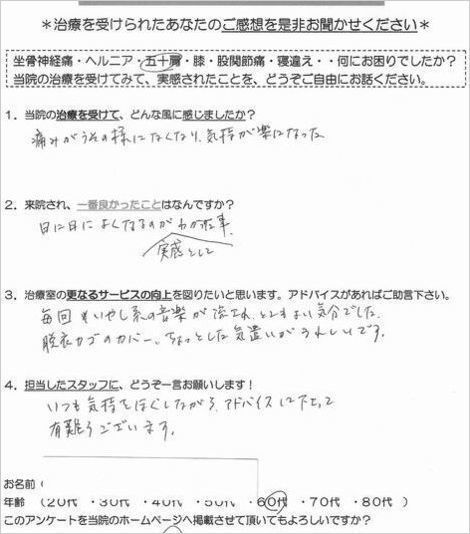 ＊治療を受けられたあなたのご感想を是非お聞かせください＊
坐骨神経痛・ヘルニア・五十肩・膝・股関節痛・寝違え・・何にお困りでしたか？
当院の治療を受けてみて、実感されたことを、どうぞご自由にお話ください。
１．当院の治療を受けて、どんな風に感じましたか？
痛みがうその様になくなり、気持が楽になった
２．来院され、一番良かったことはなんですか？
日に日によくなるのがわかった事、
実感として
３．治療室の更なるサービスの向上を図りたいと思います。アドバイスがあればご助言下さい。
毎回 いやし系の音楽が流され、とてもよい気分でした。
脱衣カゴのカバー、ちょっとした気遣いがうれしいです。
４．担当したスタッフに、どうぞ一言お願いします！
いつも気持をほぐしながら、アドバイス下さって
有難うございます。
お名前（
年齢 （20代 ・30代 ・40代 ・50代 ・60代 ・70代 ・80代 ）
このアンケートを当院のホームページへ掲載させて頂いてもよろしいですか？